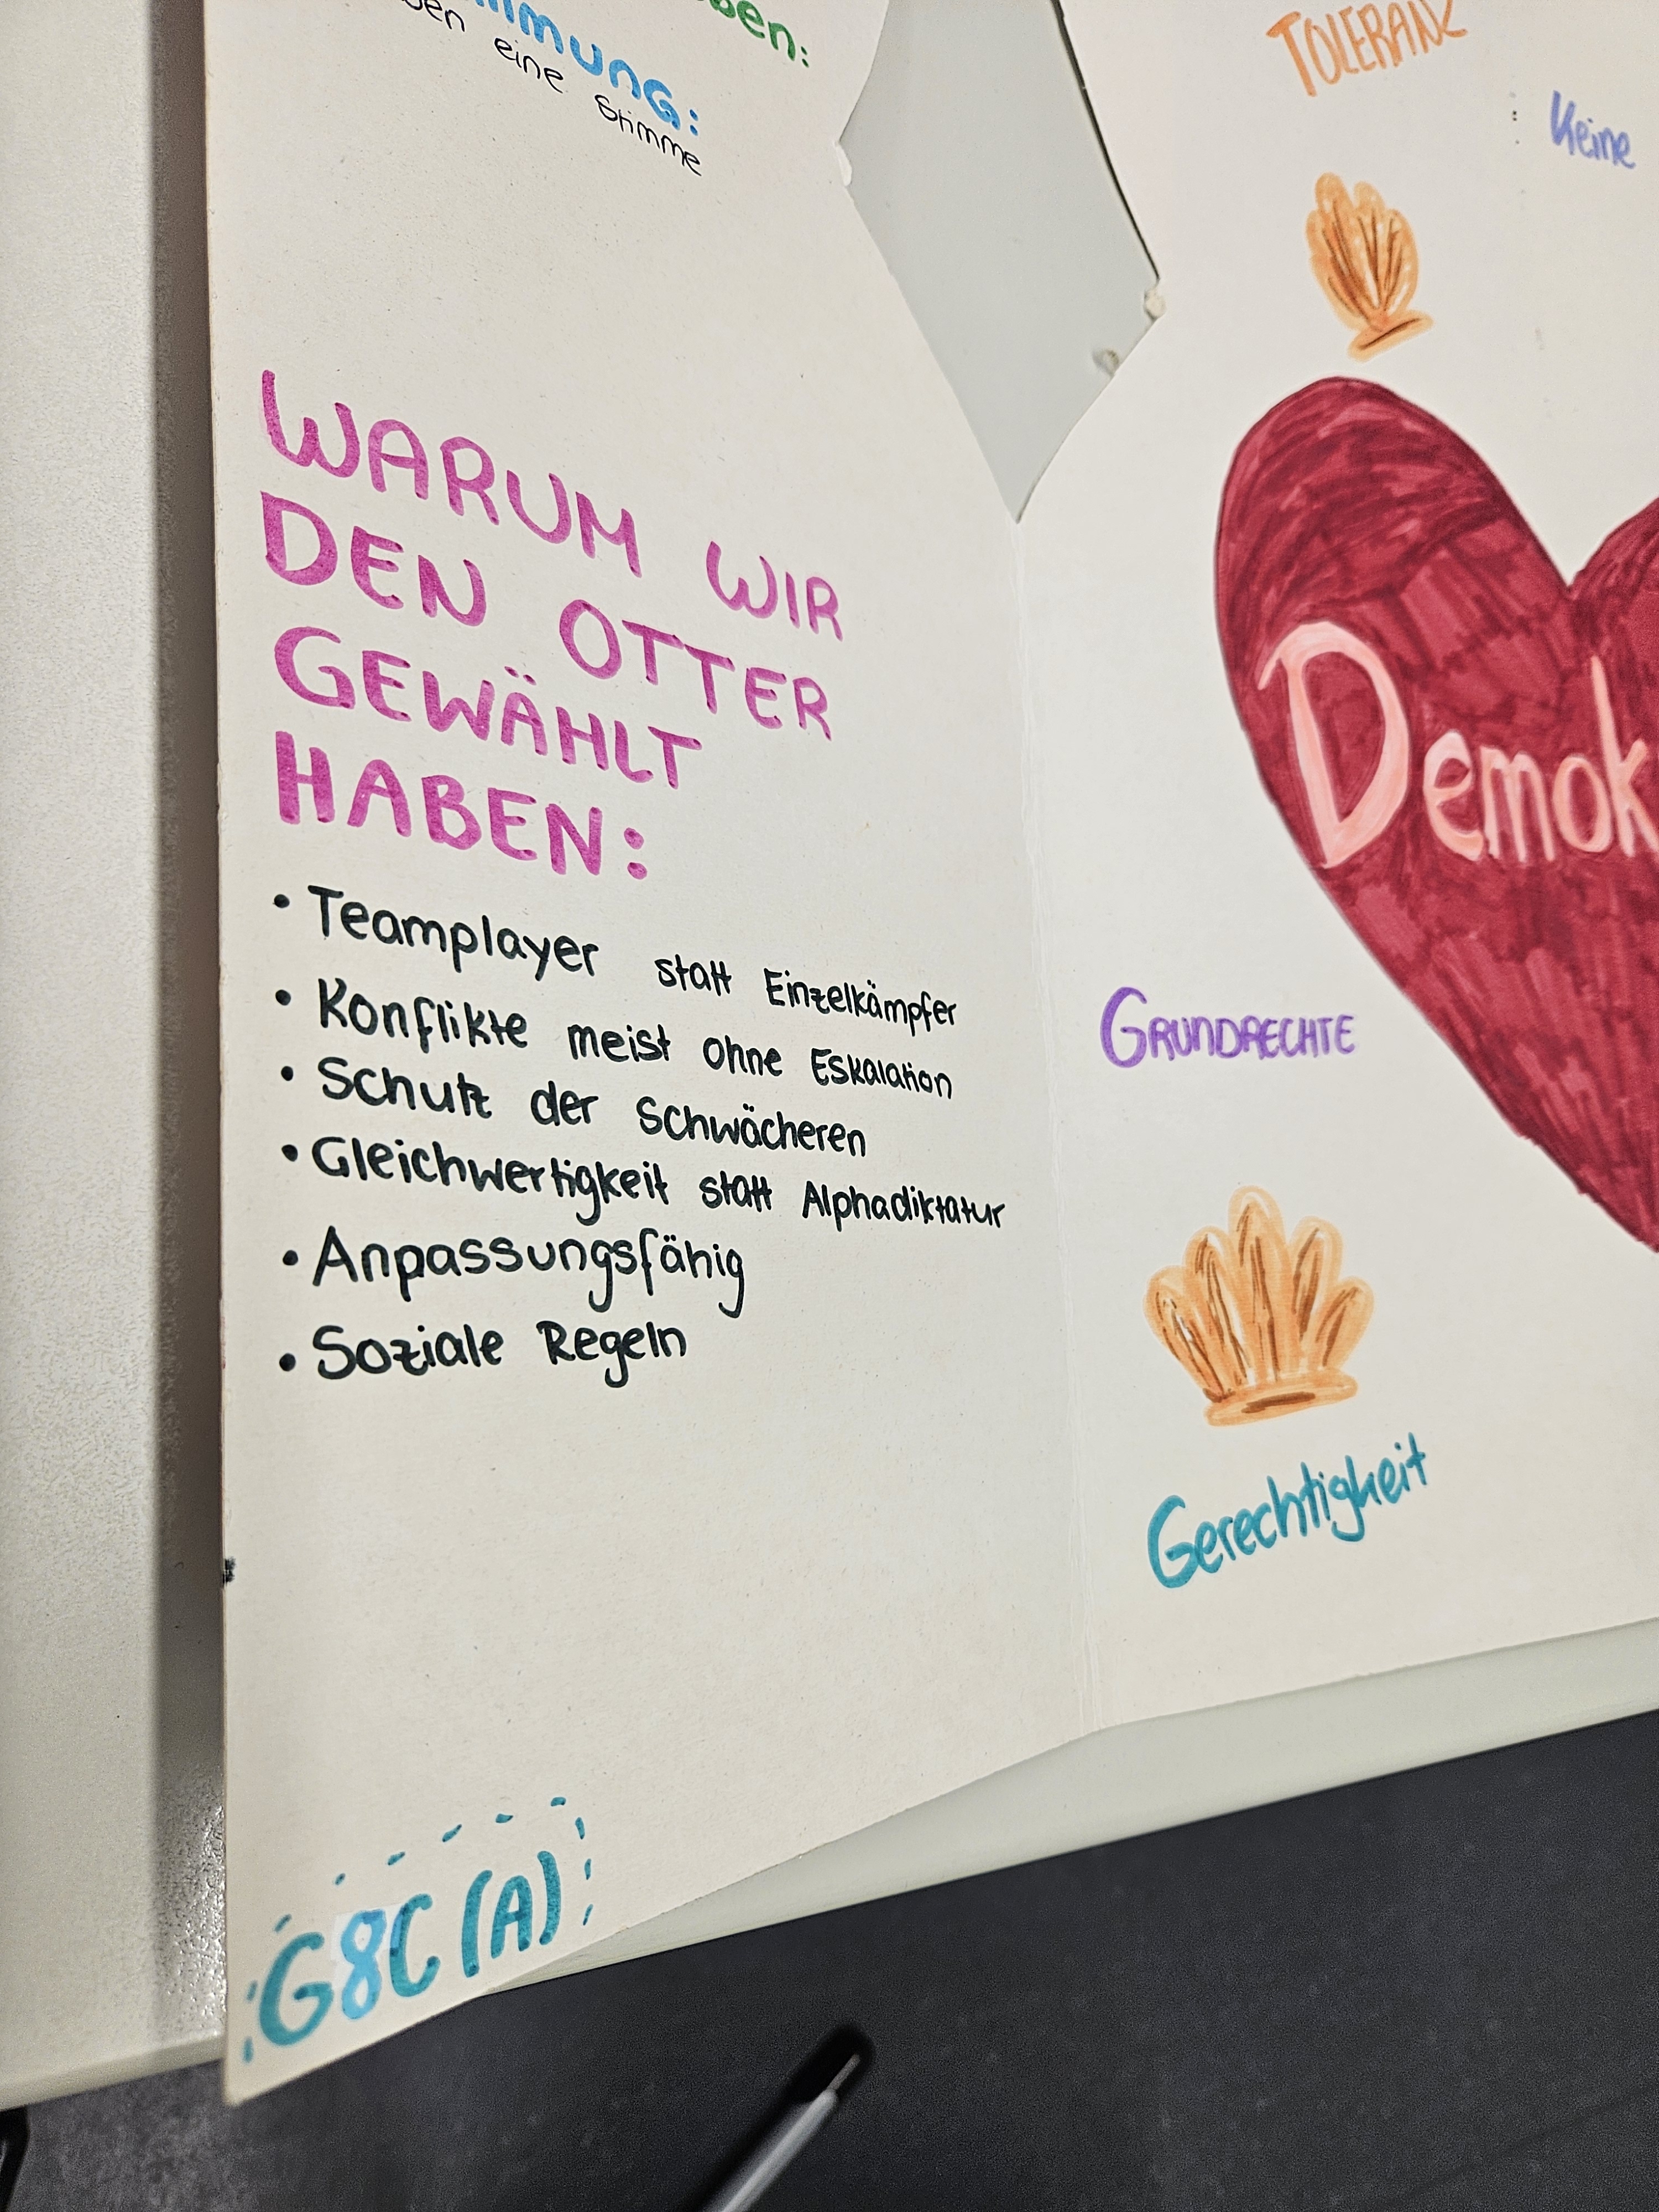 eine Stimme
WARUM WIR
DEN OTTER
GEWÄHLT
HABEN:
• Teamplayer statt Einzelkämpfer
• Konflikte meist ohne Eskalation
• Schutz der Schwächeren
• Gleichwertigkeit statt Alphadiktatur
• Anpassungsfähig
• Soziale Regeln
G8C (A)
TOLERANZ
Keine
Demok
GRUNDRECHTE
Gerechtigkeit